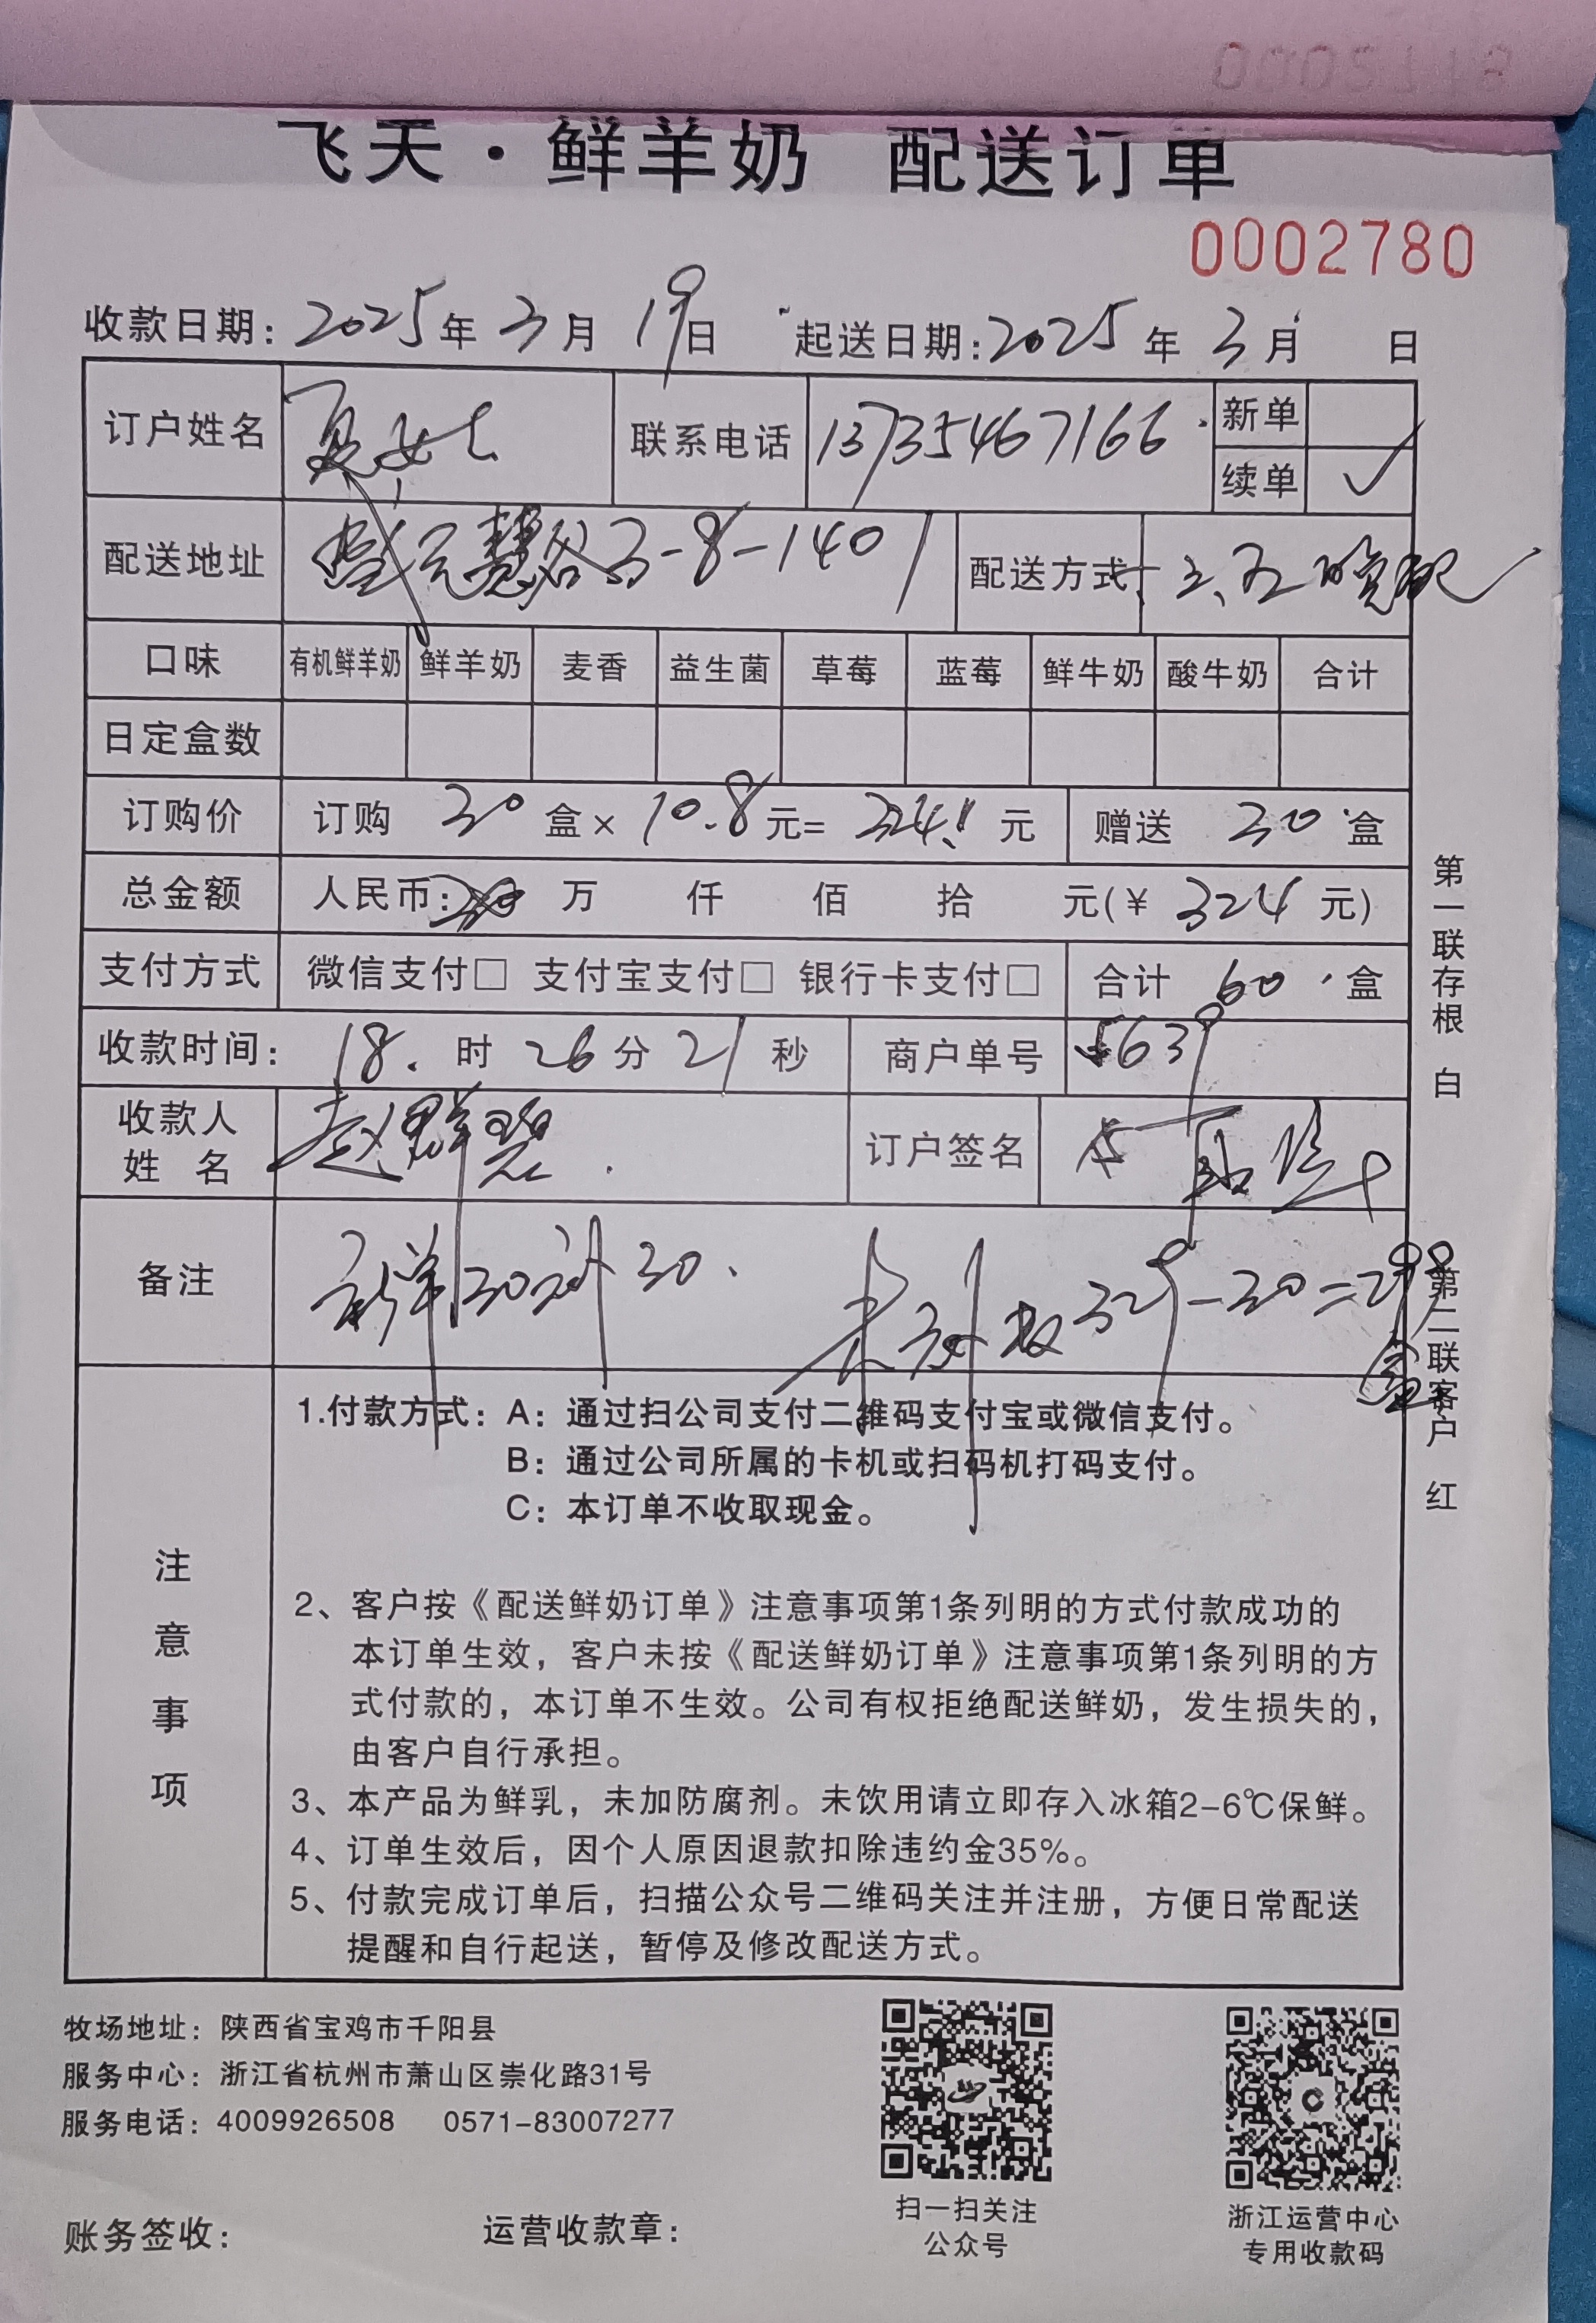 飞天·鲜羊奶 配送订单
0002780
收款日期: 2025年 3月 19日 起送日期: 2025年 3月 日
订户姓名 夏女士 联系电话 13735467166 新单
续单 ✓
配送地址 盛元慧谷3-8-1401 配送方式 一、三、五晚配
口味 有机鲜羊奶 鲜羊奶 麦香 益生菌 草莓 蓝莓 鲜牛奶 酸牛奶 合计
日定盒数
订购价 订购 30 盒× 10.8 元= 324 元 赠送 30 盒
总金额 人民币: 万 仟 佰 拾 元(¥ 324 元)
支付方式 微信支付□ 支付宝支付□ 银行卡支付□ 合计 60 盒
收款时间: 18 时 26 分 21 秒 商户单号 5639
收款人姓名 赵群碧 订户签名
备注 30 30 329-30=299
注意事项
1.付款方式: A: 通过扫公司支付二维码支付宝或微信支付。
B: 通过公司所属的卡机或扫码机打码支付。
C: 本订单不收取现金。
2、客户按《配送鲜奶订单》注意事项第1条列明的方式付款成功的
本订单生效，客户未按《配送鲜奶订单》注意事项第1条列明的方
式付款的，本订单不生效。公司有权拒绝配送鲜奶，发生损失的，
由客户自行承担。
3、本产品为鲜乳，未加防腐剂。未饮用请立即存入冰箱2-6℃保鲜。
4、订单生效后，因个人原因退款扣除违约金35%。
5、付款完成订单后，扫描公众号二维码关注并注册，方便日常配送
提醒和自行起送，暂停及修改配送方式。
第一联存根 白
第二联客户 红
牧场地址: 陕西省宝鸡市千阳县
服务中心: 浙江省杭州市萧山区崇化路31号
服务电话: 4009926508 0571-83007277
扫一扫关注
公众号
浙江运营中心
专用收款码
账务签收: 运营收款章: